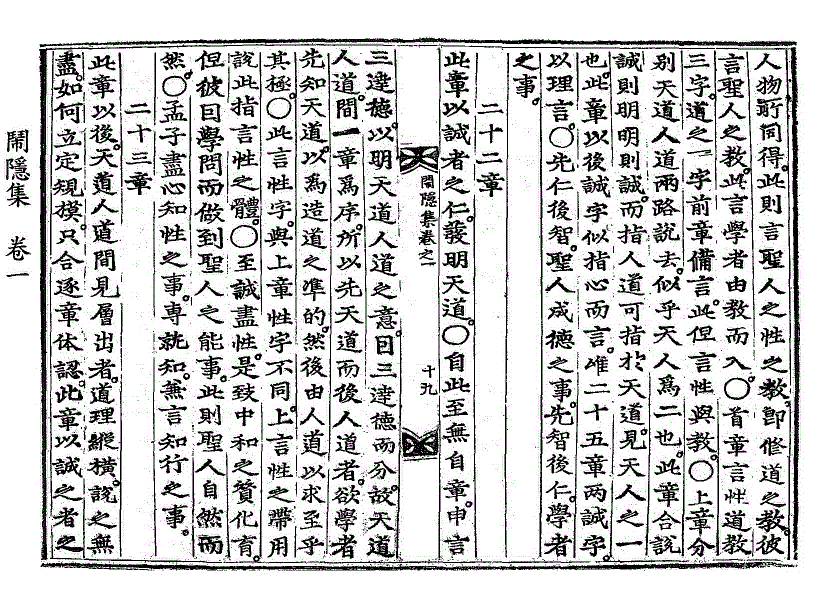 人物所同得此則言聖人之性之教卽修道之敎彼
言聖人之敎此言學者由敎而入○首章言性道敎
三字道之一字前章備言此但言性與敎○上章分
別天道人道兩路說去似乎天人爲二也此章合說
誠則明明則誠而指人道可指於天道見天人之一
也此章以後誠字似指心而言唯二十五章两誠字
以理言○先仁後智聖人成德之事先智後仁學者
之事
二十二章
此章以誠者之仁發明天道○自此至無自章申言
鬧隱集卷之一
十九
三達德以明天道人道之意因三達德而分故天道
人道間一章爲序所以先天道而後人道者欲學者
先知天道以爲造道之準的然後由人道以求至乎
其極○此言性字與上章性字不同上言性之帶用
說此指言性之體○至誠盡性是致中和之贊化育
但彼因學問而做到聖人之能事此則聖人自然而
然○孟子盡心知性之事専就知兼言知行之事
二十三章
此章以後天道人道間見層出者道理縱橫說之無
盡如何立定規模只合逐章体認此章以誠之者之
鬧隱集 卷一